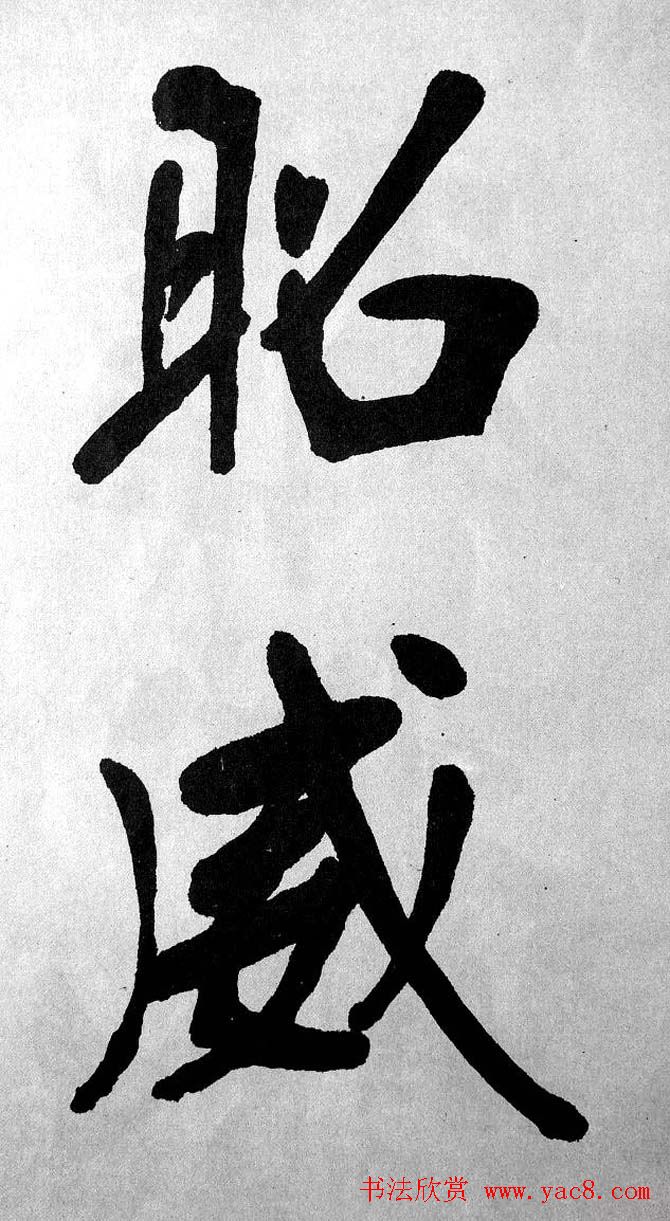 昭
威
书法欣赏 www.yac8.com